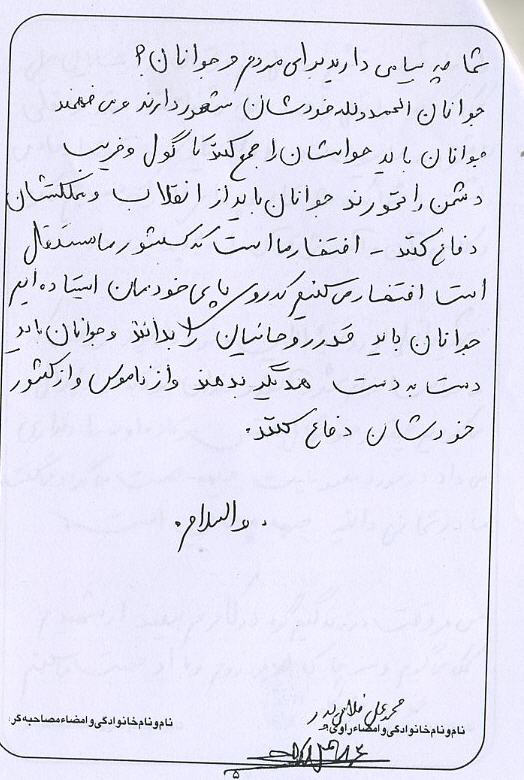 شما چه پیامی دارید برای مردم و جوانان؟
جوانان الحمدولله خودشان شعور دارند و می فهمند
جوانان باید حواسشان را جمع کنند تا گول و فریب
دشمن را نخورند جوانان باید از انقلاب و مملکتشان
دفاع کنند - افتخار ما است که کشور ما مستقل
است افتخار می کنیم که روی پای خودمان ایستاده ایم
جوانان باید قدر روحانیان را بدانند و جوانان باید
دست به دست همدیگر بدهند و از ناموس و از کشور
خودشان دفاع کنند.
والسلام.
محمد علی فلاحی پدر
نام و نام خانوادگی و امضاء راوی:
نام و نام خانوادگی و امضاء مصاحبه گر: